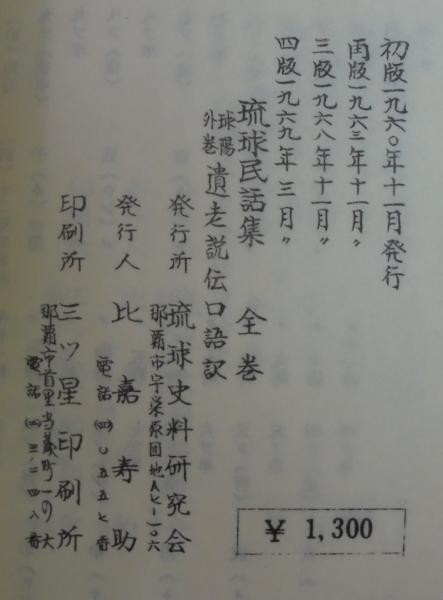 初版一九六〇年十一月発行
再版一九六三年十一月〃
三版一九六八年十一月〃
四版一九六九年三月〃
琉球民話集 全巻
球陽外巻 遺老説伝口語訳
発行所 琉球史料研究会
那覇市字栄原団地
発行人 比嘉寿助
電話(四)〇五五七番
印刷所 三ツ星印刷所
那覇市首里当蔵町一の大
電話(二)三二四八番
¥ 1,300